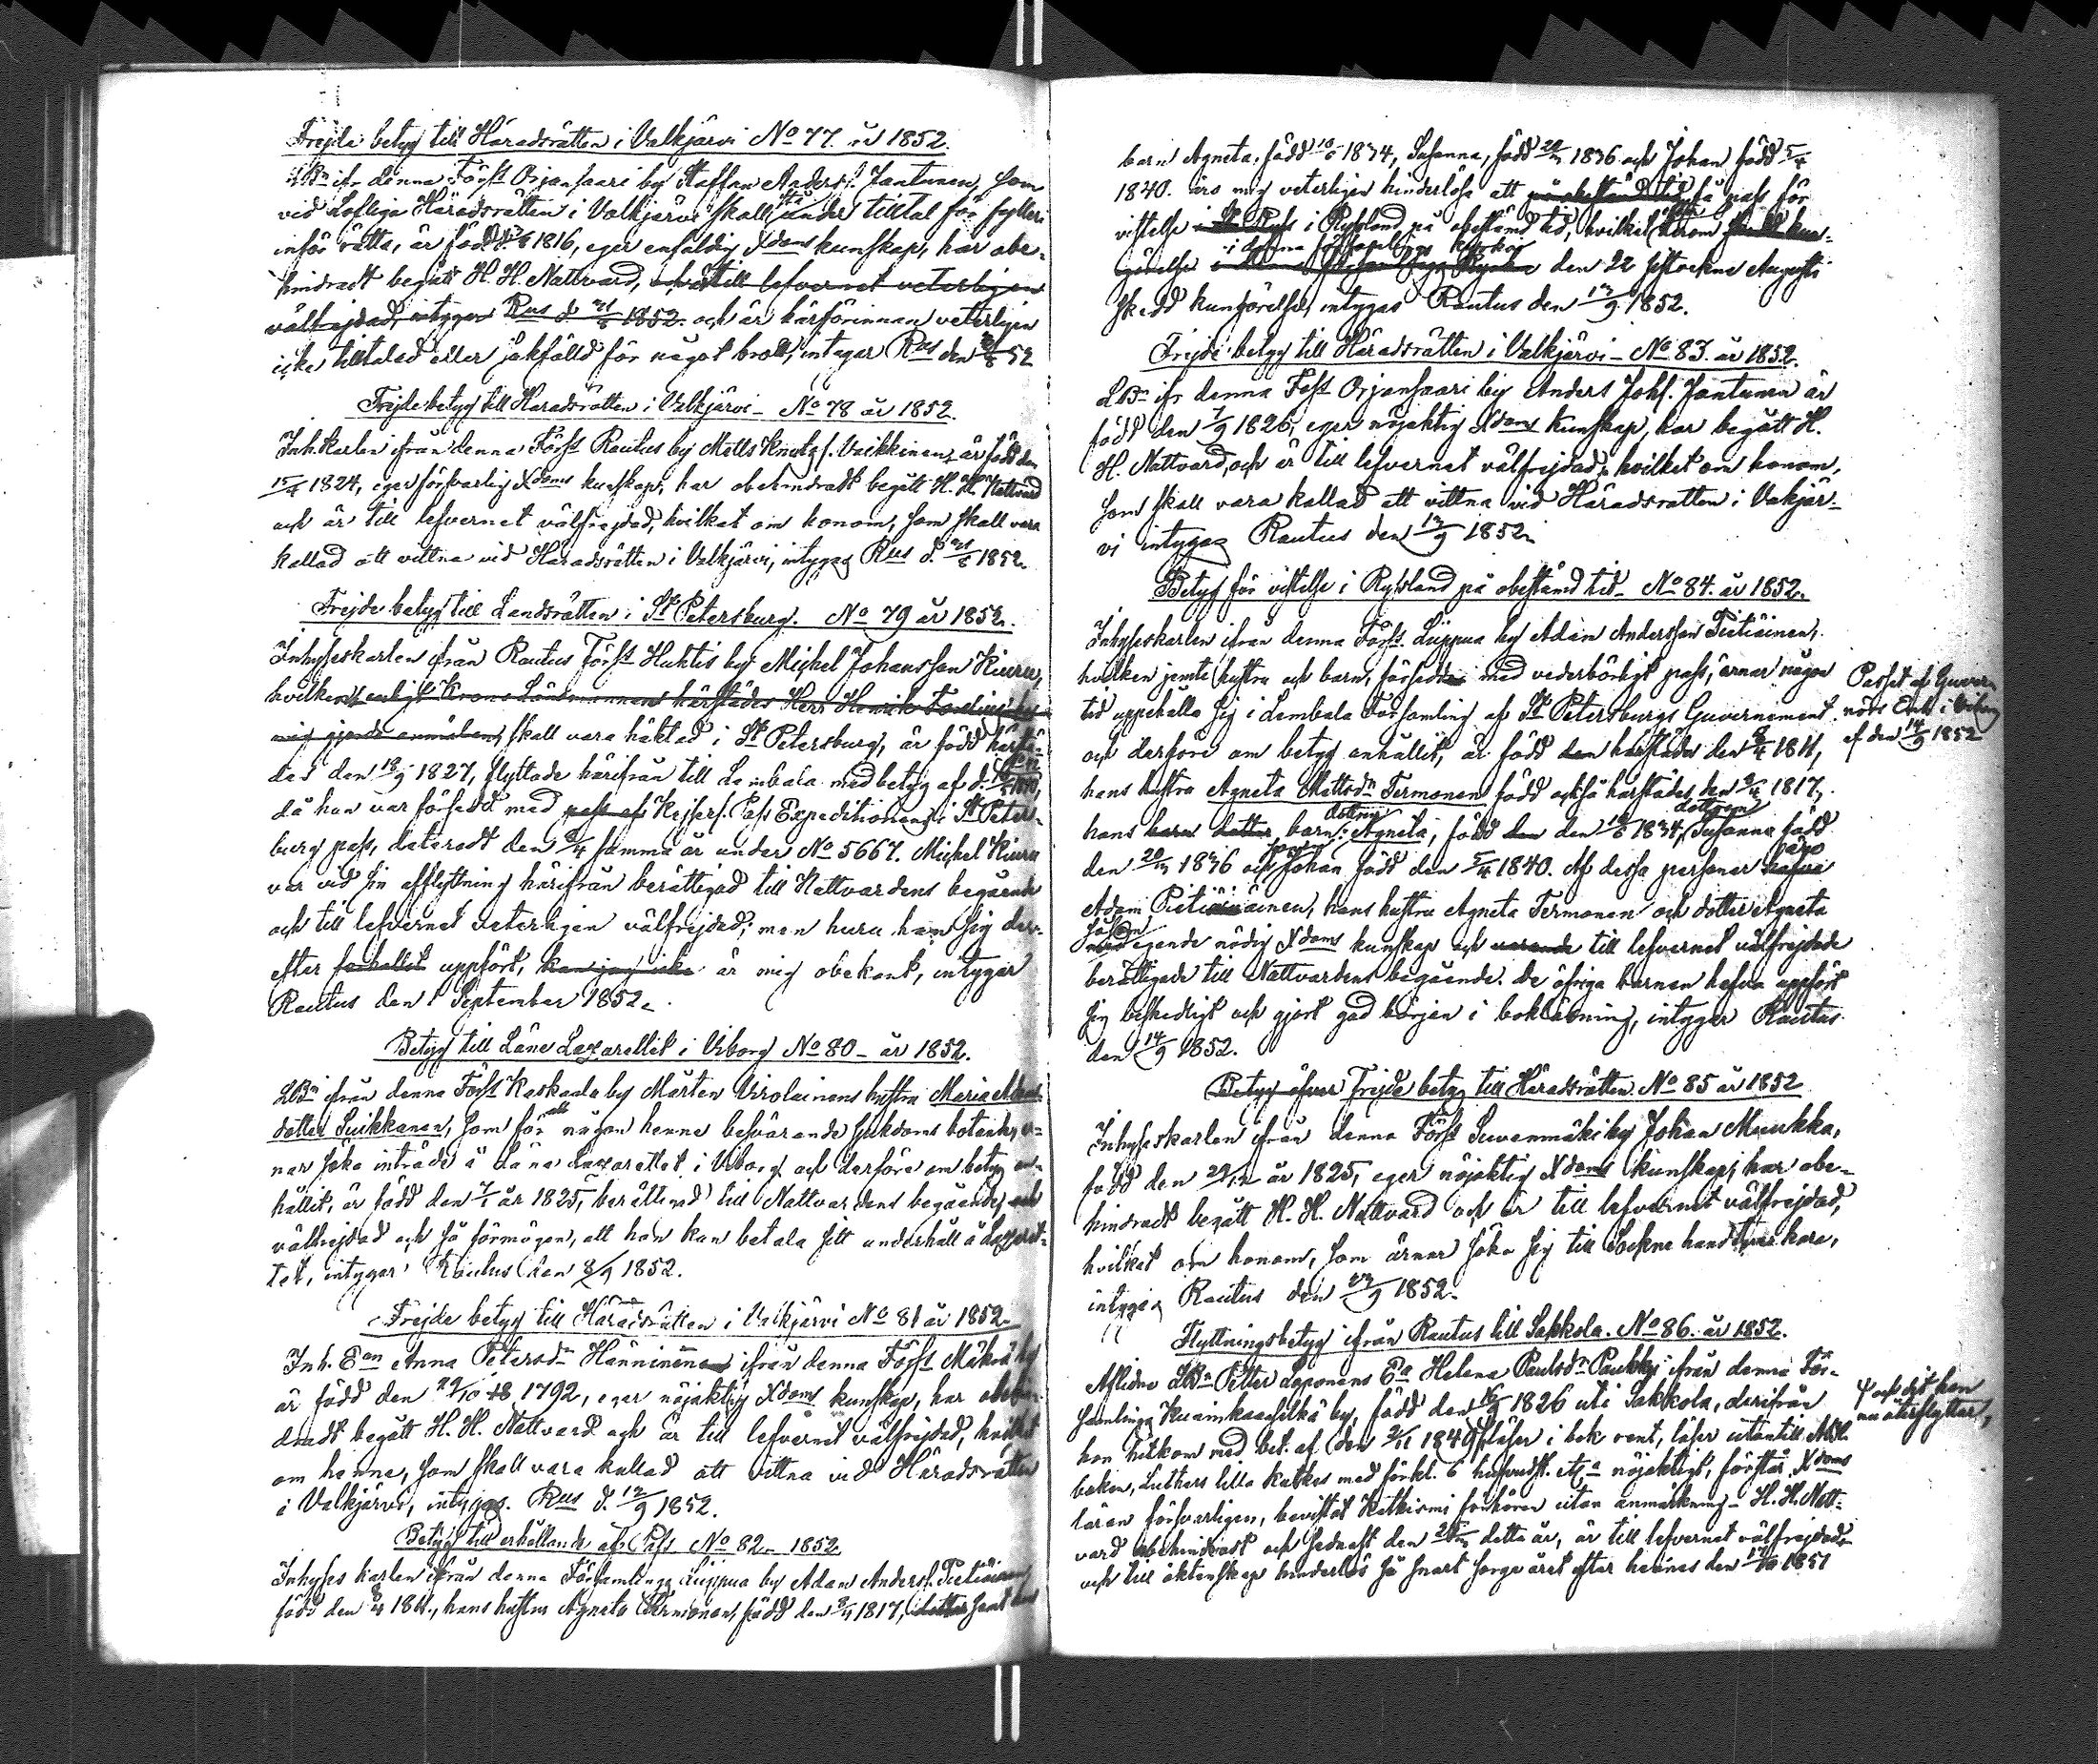 Frejde betyg till Häradsrätten i Valkjärvi No 77. år 1852.
LBn ifr denna Förs:t Orjansaari by Staffan Anders. Jantunen, som
vid Lofliga Häradsrätten i Valkjärvi skall stå under tilltal för fylleri
inför rätta, är född 1816, eger enfaldig Xdoms kunskap, har obe-
hindradt begått H. H. Nattvard, och är till lefvernet veterligen
välfrejdad, intygar Rus d. 31/8 1852. och är härförinnan veterligen
icke tilltalad eller sakfälld för något brott, intygar Rus den 52
Frejde betyg till Häradsrätten i Valkjärvi – No 78 år 1852.
Inh.karlen ifrån denna Förs:t Rautus by Matts Knutss. Vaikkinen, är född den
15/4 1824, eger försvarlig Xdoms kunskap, har obehindradt begått H. H. Nattvard
och är till lefvernet välfrejdad, hvilket om honom, som skall vara
kallad att vittna vid Häradsrätten i Valkjärvi, intygas Rus d. 31/8 1852.
Frejde betyg till Landsrätten i St Petersburg. No 79 år 1852.
Inhyseskarlen ifrån Rautus Förs:t Huhtis by Michel Johansson Kiuru,
hvilken enligt Krono Länsmannen härstädes Herr Henrik
mig gjorde anmälan, skall vara häktad i St Petersburg, är född härstä-
des den 18/9 1827, flyttade härifrån till Lembala med betyg af d.
då han var försedd med pass af Kejserl. Pass Expeditionens i St Peters-
burg pass, dateradt den samma år under No 5667. Michel Kiuru
var vid sin afflyttning härifrån berättigad till Nattvardens begående
och till lefvernet veterligen välfrejdad; men huru han sig der-
efter förhållit uppfört, kan jag icke är mig obekant, intygar
Rautus den 1 September 1852.
Betyg till Läne Lazarettet i Viborg No 80 – år 1852.
LBn ifrån denna Förs:t Raskaala by Mårten Virolainens hustru Maria
dotter Suikkanen, som för att någon henne besvärande sjukdoms botande, är-
nar söka inträde å Läne Lazarettet i Viborg och derföre om betyg an-
hållit, är född den 7/1 år 1825, berättigad till Nattvardens begående, och
välfrejdad och så förmögen, att hon kan betala sitt underhåll å Lazaret-
tet, intygar Rautus den 8/9 1852.
Frejde betyg till Häradsrätten i Valkjärvi No 81 år 1852.
Inh. Ean Anna Petersdr Hänninen ifrån denna Förs:t Mäkrä by
är född den 29/10 1792, eger nöjaktig Xdoms kunskap, har obehin-
dradt begått H. H. Nattvard och är till lefvernet välfrejdad, hvilket
om henne, som skall vara kallad att vittna vid Häradsrätten
i Valkjärvi, intygas. Rus d. 12/9 1852.
Betyg till erhållande af Pass No 82 – 1852.
Inhyses karlen ifrån denna Församlings Liippua by Adam Anderss. Pietiäinen
född den 8/4 1811, hans hustru Agneta Termonen, född den 3/4 1817, dotter samt
barn Agneta, född 10/6 1834, Susanna, född 1836 och Johan född 5/4
1840. äro mig veterligen hinderlöse att på obestämd tid få pass för
vistelse i St Ryss i Ryssland på obestämd tid, hvilket derom skedd kun-
i denna församlings kyrka
görelse i denna församlings Kyrka den 22 sistvekne Augusti
skedd kungörelse, intygas Rautus den 12/9 1852.
Frejde betyg till Häradsrätten i Valkjärvi – No 83. år 1852.
LBn ifr denna Förs:t Orjansaari by Anders Johs. Jantunen är
född den 7/9 1826, eger nöjaktig Xdoms kunskap, har begått H.
H. Nattvard, och är till lefvernet välfrejdad, hvilket om honom,
som skall vara kallad att vittna vid Häradsrätten i Valkjär-
vi intygas Rautus den 12/9 1852.
Betyg för vistelse i Ryssland på obestämd tid – No 84. år 1852.
Inhyseskarlen ifrån denna Förs:t Liippua by Adam Andersson Pietiäinen,
hvilken jemte hustru och barn, försedde med vederbörligt pass, ärnar någon
tid uppehålla sig i Lembala Församling af St Petersburgs Guvernement
och derföre om betyg anhållit, är född den härstädes den 8/4 1811,
hans hustru Agneta Mattsdr Termonen född också härstädes den 3/4 1817,
hans barn dotter barn: dottren Agneta, född den den 10/6 1834, dottren Susanna född
den 1836 och sonen Johan född den 5/4 1840. Af dessa personer hafva äro
Adam Pietiäinen, hans hustru Agneta Termonen och dotter Agneta
såsom egende nödig Xdoms kunskap och varande till lefvernet välfrejdade
berättigade till Nattvardens begående. De öfriga barnen hafva uppfört
sig beskedligt och gjort god början i bokläsning, intygar Rautus
den 14/9 1852.
Passet af Guver-
nörs Emb. i Viborg
af den 14/9 1852
Betyg öfver Frejde betyg till Häradsrätten No 85 år 1852
Inhyseskarlen ifrån denna Förs:t Suvenmäki by Johan Muukka,
född den 29/12 år 1825, eger nöjaktig Xdoms kunskap, har obe-
hindradt begått H. H. Nattvard och är till lefvernet välfrejdad,
hvilket om honom, som ärnar söka sig till Sockne handtverkare,
intygas Rautus den 1852.
Flyttningsbetyg ifrån Rautus till Sakkola. No 86. år 1852.
Aflidne LBn Petter Loponens Ea Helena Paulsdr Paukku ifrån denna För-
samlings Kuninkaanselkä by, född den 1826 uti Sakkola, derifrån
hon hitkom med bet. af den 2/11 1849, läser i bok rent, läser utantill ABC
boken, Luthers lilla katkes med förkl. 6 hufvudst. nöjaktigt, förstår Xdoms
läran försvarligen, bevistat Katkismi förhören utan anmärkning – H. H. Natt-
vard obehindradt och sednast den detta år, är till lefvernet välfrejdad
och till äktenskap hinderlös så snart sorge året efter hennes den 1851
och dit hon
nu återflyttar,